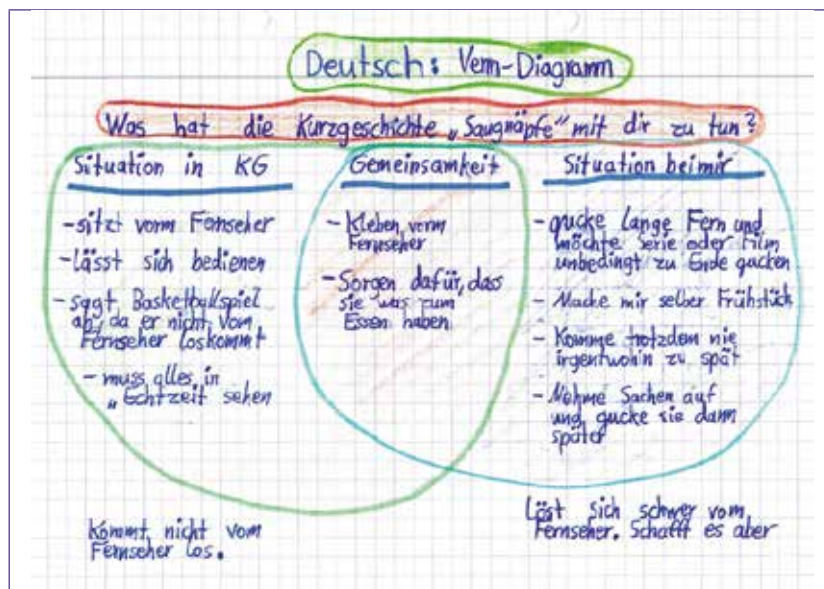 Deutsch: Venn-Diagramm
Was hat die Kurzgeschichte „Saugnäpfe" mit dir zu tun?
Situation in KG
- sitzt vorm Fernseher
- lässt sich bedienen
- sagt Basketballspiel
ab, da er nicht vom
Fernseher loskommt
- muss alles in
„Echtzeit sehen
Gemeinsamkeit
- Kleben vorm
Fernseher
- Sorgen dafür, dass
sie was zum
Essen haben
Situation bei mir
- gucke lange Fern und
möchte Serie oder Film
unbedingt zu Ende gucken
- Mache mir selber Frühstück
- Komme trotzdem nie
irgentwohin zu spät
- Nehme Sachen auf
und gucke sie dann
später
Kommt nicht vom
Fernseher los.
Löst sich schwer vom
Fernseher. Schafft es aber